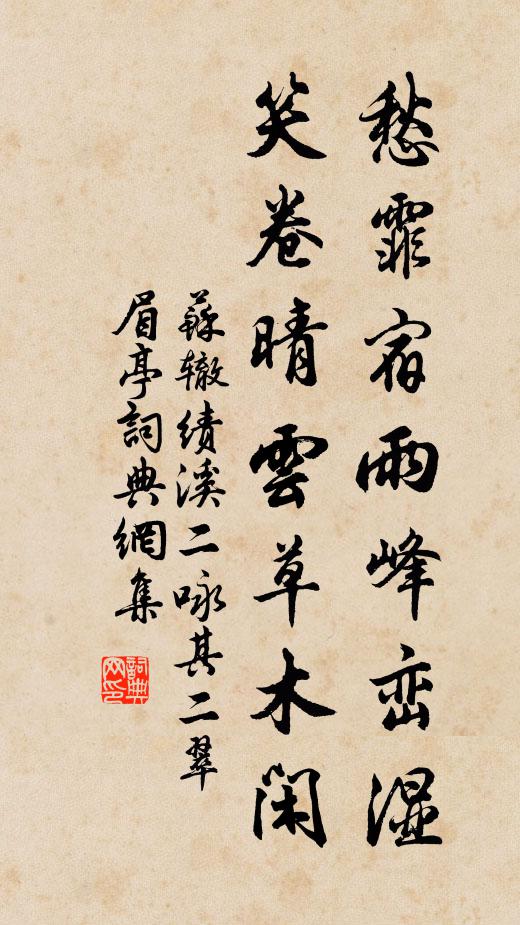 愁霏宿雨峰峦湿
笑卷晴雲草木闲
蘇辙绩溪二咏其二翠
眉亭詞典網集
詞典网印